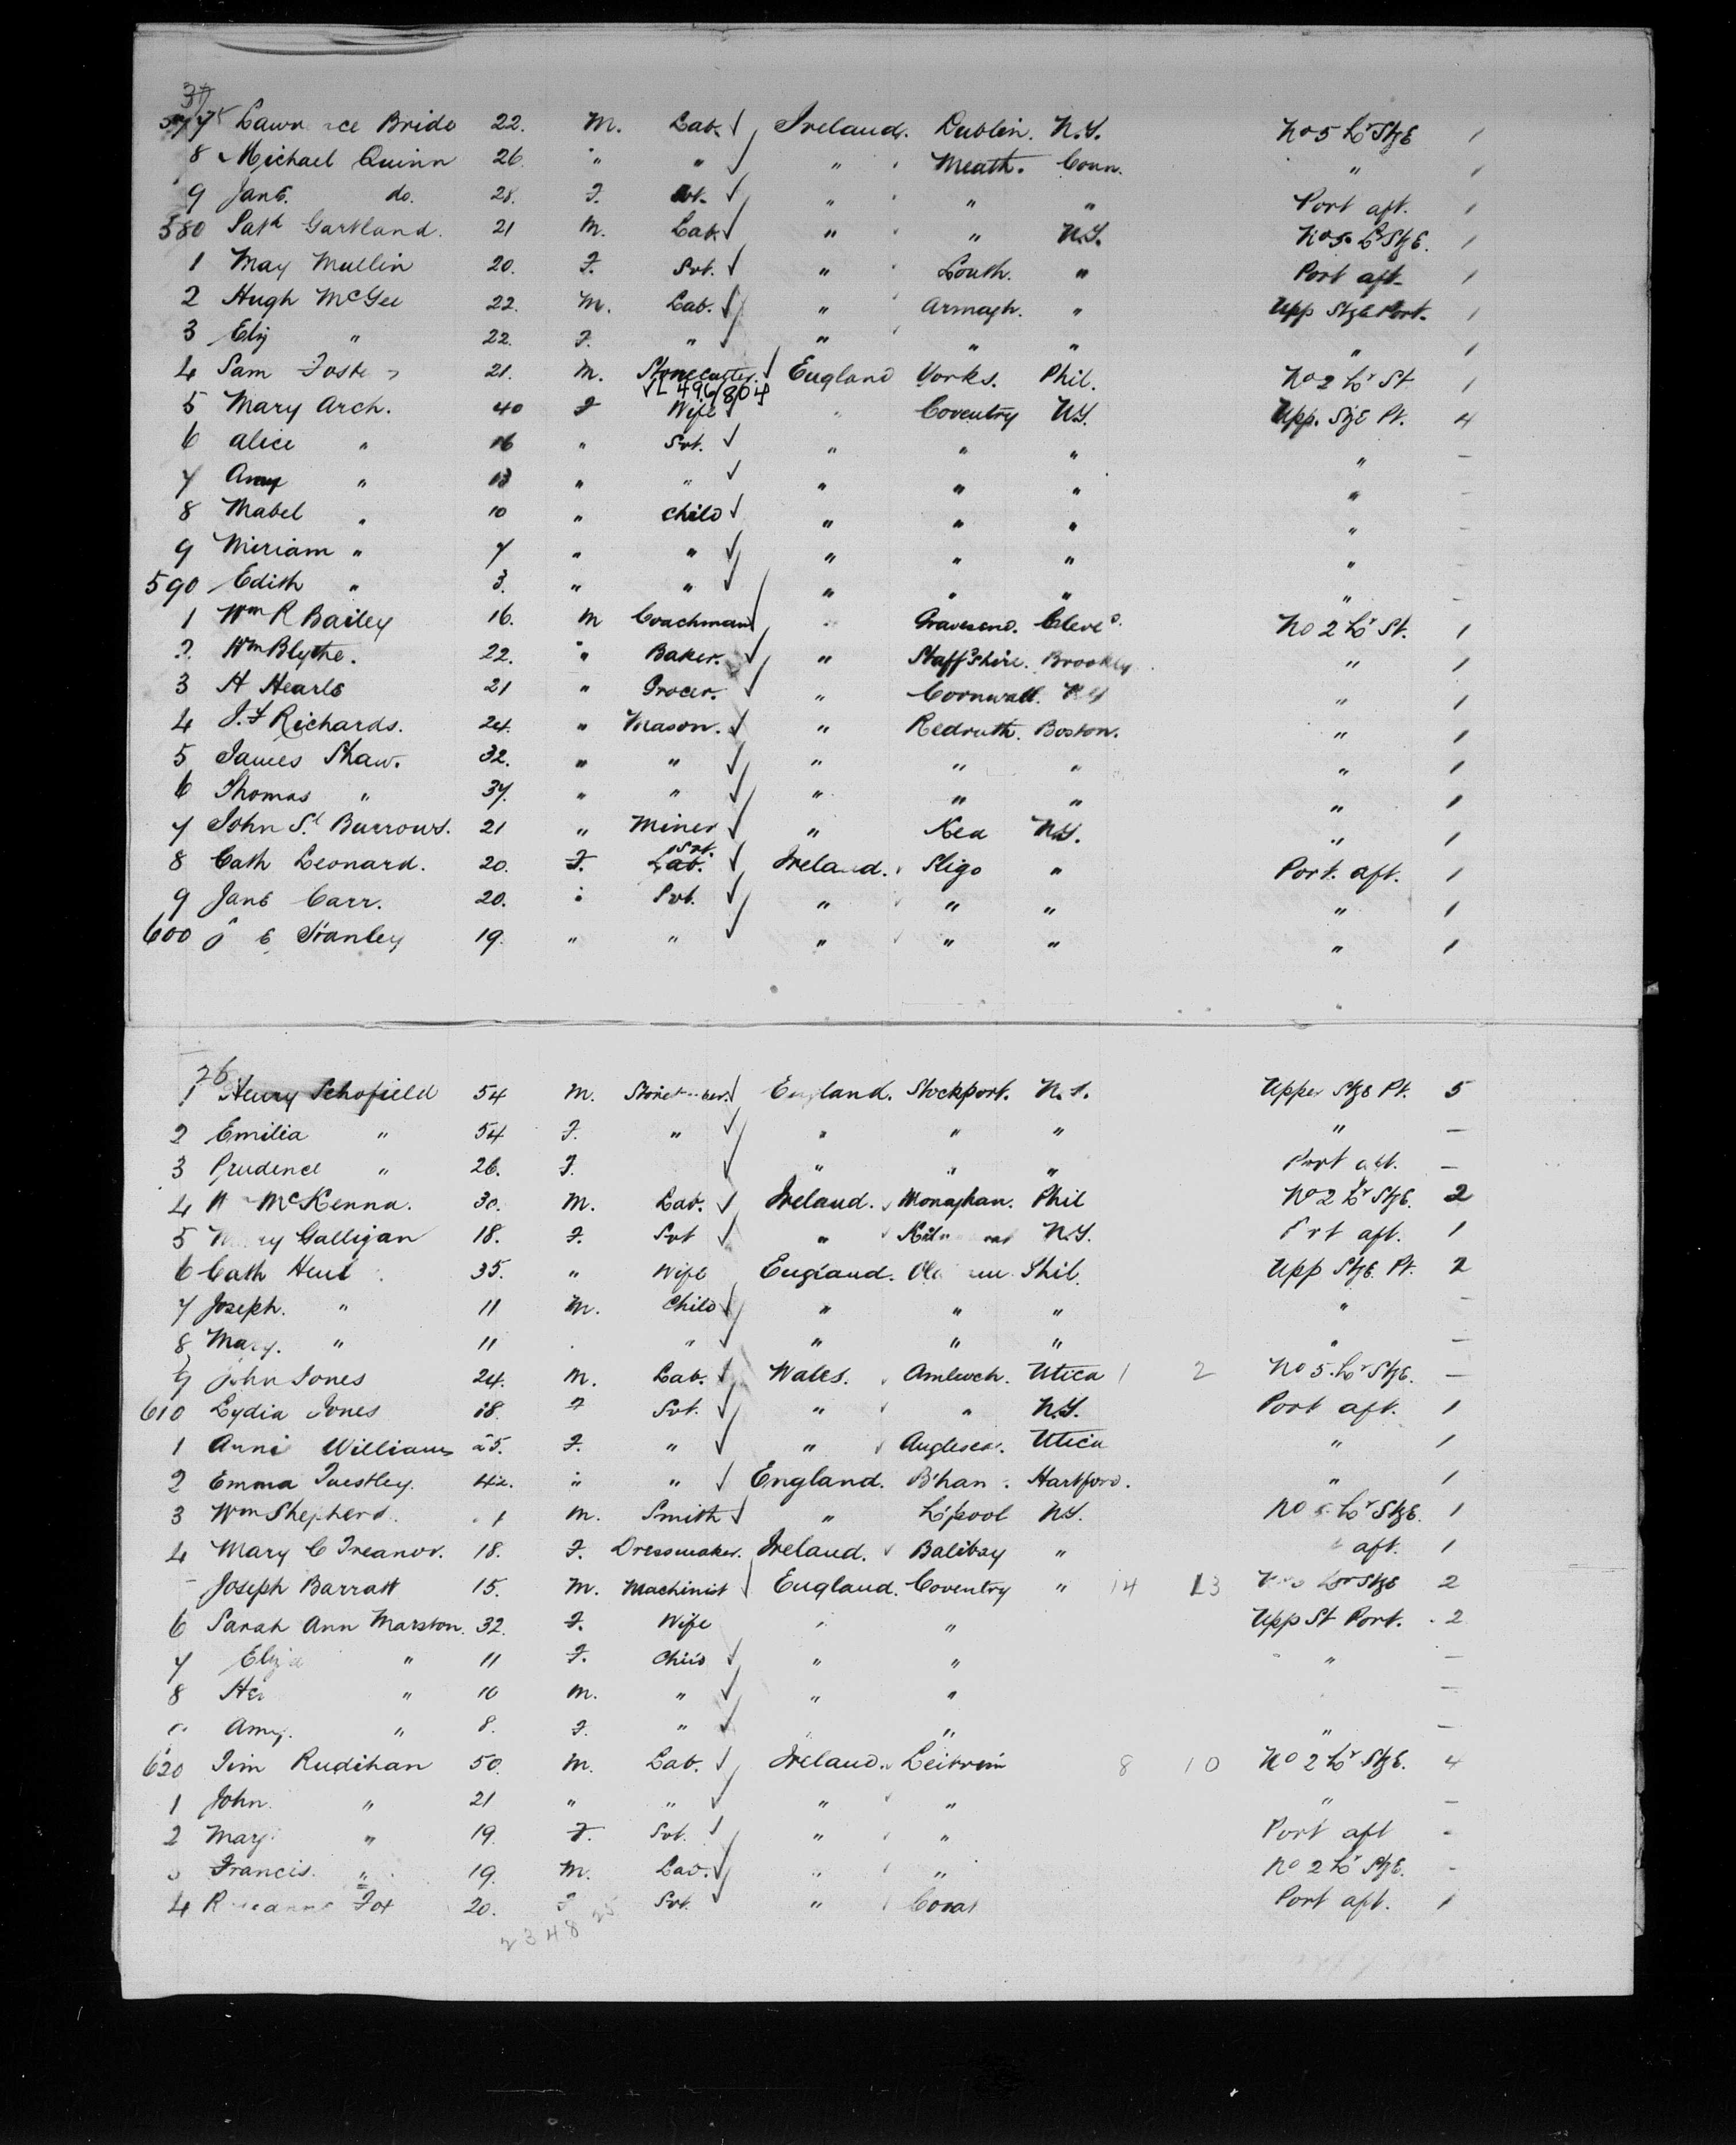 37
577 Lawr ce Bride 22. M. Lab. Ireland. Dublin. N.Y. No 5 Lr StgE 1
8 Michael Quinn 26 " " " Meath. Conn. " 1
9 Jane. do. 28. F. Svt. " " " Port aft. 1
580 Patk Gartland. 21 M. Lab " " N.Y. No 5 Lr StgE. 1
1 May Mullin 20. F. Svt. " Louth. " Port aft. 1
2 Hugh McGee 22. M. Lab. " Armagh. " Upp StgE Port. 1
3 Eliz " 22. F. " " " " " 1
4 Sam Foste 21. M. Stonecutter. England Yorks. Phil. No 2 Lr St 1
VL 496/804
5 Mary Arch. 40 F Wife " Coventry N.Y. Upp. StgE Pt. 4
6 Alice " 16 " Svt. " " " " —
7 Amy " 13 " " " " " " -
8 Mabel " 10 " Child " " " " -
9 Miriam " 7 " " " " " " -
590 Edith " 3. " " " " " " -
1 Wm R Bailey 16. M Coachman " Gravesend. Cleved. No 2 Lr St. 1
2. Wm Blythe. 22. " Baker. " Staffshire. Brookly " 1
3 H Hearle 21 " Grocer. " Cornwall. N.Y " 1
4 J.F Richards. 24. " Mason. " Redruth. Boston. " 1
5 James Shaw. 32. " " " " " " 1
6 Thomas " 37. " " " " " " 1
7 John St. Burrows. 21 " Miner " Kea N.Y. " 1
Svt.
8 Cath Leonard. 20. F. Lab. Ireland. Sligo " Port. aft. 1
9 Jane Carr. 20. " Svt. " " " " 1
600 E Stanley 19. " " " " " " 1
26
1 Henry Schofield 54 M. England. Stockport. N.Y. Upper StgE Pt. 5
2 Emilia " 54 F. " " " " " —
3 Prudence " 26. F. " " " Port aft. —
4 McKenna. 30. M. Lab. Ireland. Monaghan. Phil No 2 Lr StgE. 2
5 Galligan 18. F. Svt " N.Y. P rt aft. 1
6 Cath 35. " Wife England. Phil. Upp StgE. Pt. 2
7 Joseph. " 11 M. Child " " " " -
8 Mary. " 11 " " " " " —
9 John Jones 24. M. Lab. Wales. Amlwch. Utica 1 2 No 5. Lr StgE. —
610 Lydia Jones 18. F Svt. " " N.Y. Port aft. 1
1 Annie Williams 25. F. " " Anglesea. Utica " 1
2 Emma 42. " " England. B'han . Hartford. " 1
3 Wm Shepherd. M. Smith " L'pool N.Y. No 5. Lr StgE. 1
4 Mary C Treanor. 18. F. Dressmaker. Ireland. Balibay " aft. 1
Joseph Barratt 15. M. Machinist England. Coventry " 14 13 Lr StgE 2
6 Sarah Ann Marston. 32. F. Wife " " Upp St Port. 2
7 Eliza " 11 F. Child " " " —
8 " 10 M. " " " —
Amy. " 8. F. " " " —
620 Tim Rudihan 50. M. Lab. Ireland. Leitrim 8 10 No 2 Lr StgE. 4
1 John " 21 " " " " " —
2 Mary " 19. F. Svt. " " Port aft -
Francis. " 19. M. Lab. " " No 2 Lr StgE. -
4 Fox 20. F Svt. " Port aft. 1
2 3 4 8 25